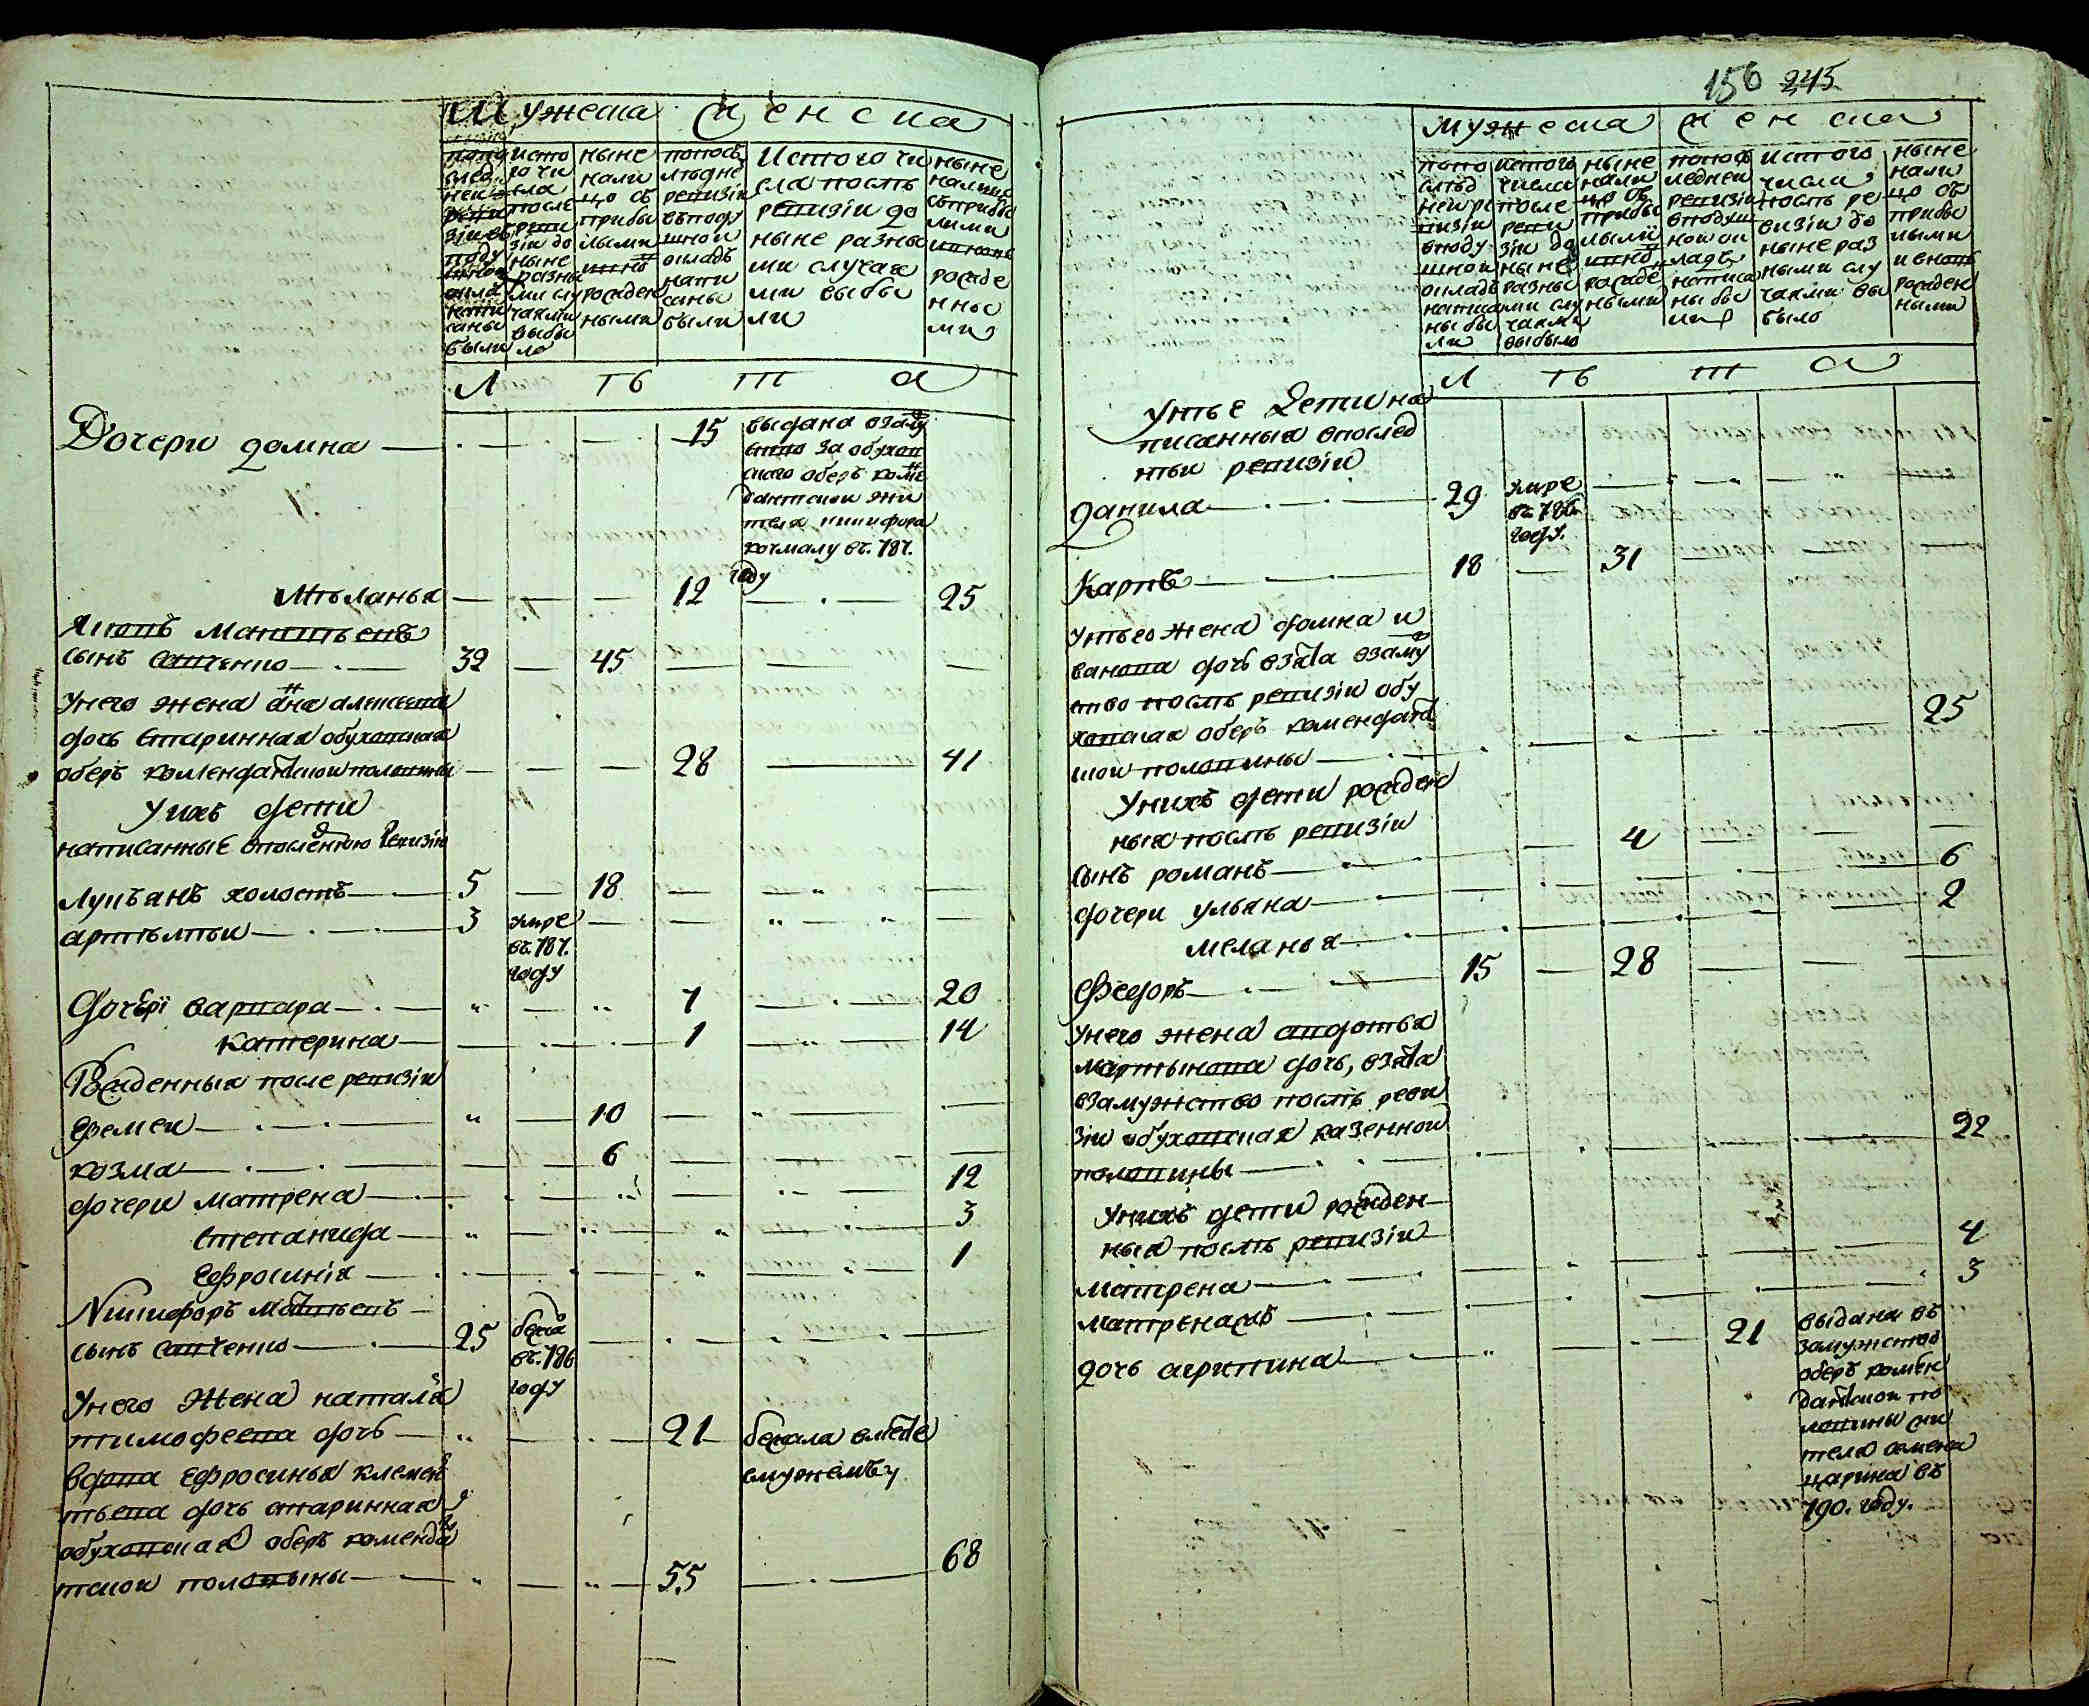 мужеска женска
попо
след
ней
реви
зіи въ
поду
шной
окла
напи
саны
были
исто
го чи
сла
после
реви
зіи до
ныне
разны
ми слу
чаями
выбы
ло
ныне
нали
цо съ
прибы
лыми
рожден
ными
попосъ
лѣдне
ревизіи
въподу
шнои
окладъ
напи
саны
были
Истого чи
сла послѣ
ревизіи до
ныне разны
ми случая
ми выбы
ли
ныне
налицо
съприбы
лыми
рожде
нны
ми
л ѣ т а
Дочери домна 15
выдана взаму
ство за обухов
ского оберъ коме
дантскои жи
теля никифора
кочмалу въ. 787.
году
Мѣланья 12 25
Яковъ Матвѣевъ
сынъ савченко 32 45
Унего жена анна алексеева
дочь старинная обуховская
оберъ комендантскои половины 28 41
Унихъ дети
написанные впоследнюю ревизію
Лукъанъ холостъ 5 18
артѣмѣи 3 умре
въ. 787.
году
Дочери варвара 7 20
катерина 1 14
Рожденныя после ревизіи
Еремеи 10
козма 6
дочери матрена 12
степанида 3
Ефросинія 1
Никифоръ Матвѣевъ
сынъ савченко 25 бежа
въ. 786
году
Унего Жена наталья
тимофеева дочь 21 бежала вместе
смужемъ
вдова Ефросинья клемен
тьева дочь старинная
обуховская оберъ коменда
тскои половины 55 68
156 245
мужеска женска
попо
слѣд
неи ре
визіи
вподу
шнои
окладъ
написа
ны бы
ли
истого
числа
после
реви
зіи до
ныне
разны
ми слу
чаями
выбыло
ныне
нали
цо съ
прибы
лыми
рожде
ными
попос
леднеи
ревизіи
вподуш
нои ок
ладъ
написа
ны бы
ли
истого
числа
послѣ ре
визіи до
ныне раз
ными слу
чаями вы
было
ныне
нали
цо съ
прибы
лыми
и вновь
рожден
ными
л ѣ т а
Унѣе Дети на
писанныя впослед
нѣи ревизіи
данила 29 умре
въ 786
году.
Карпъ 18 31
Унѣго жена домна и
ванова дочь взята взаму
ство послѣ ревизіи обу
ховская оберъ комендат
скои половины 25
Унихъ дети рожден
ныя послѣ ревизіи
сынъ романъ 4
дочери ульяна 6
меланья 2
Федоръ 15 28
Унего жена авдотья
мартынова дочь, взята
взамужство послѣ реви
зіи обуховская казеннои
половины 22
Унихъ дети рожден
ныя послѣ ревизіи
матрена 4
матрена 3
дочь агрипина 21 выдана въ
замужство
оберъ комен
дантскои по
ловины жи
теля семена
царина въ
790. году.